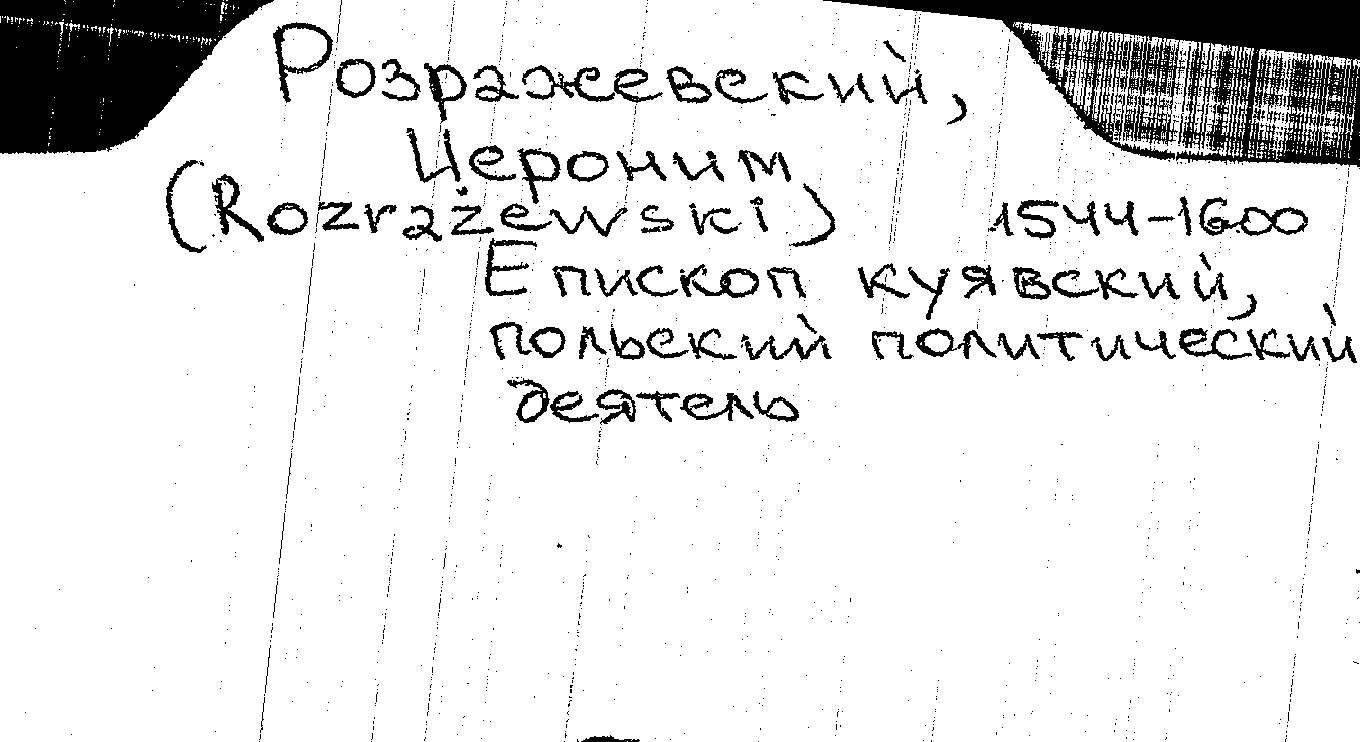 Розражевский,
Иероним
(Rozrażewski) 1544-1600
Епископ куявский,
польский политический
деятель